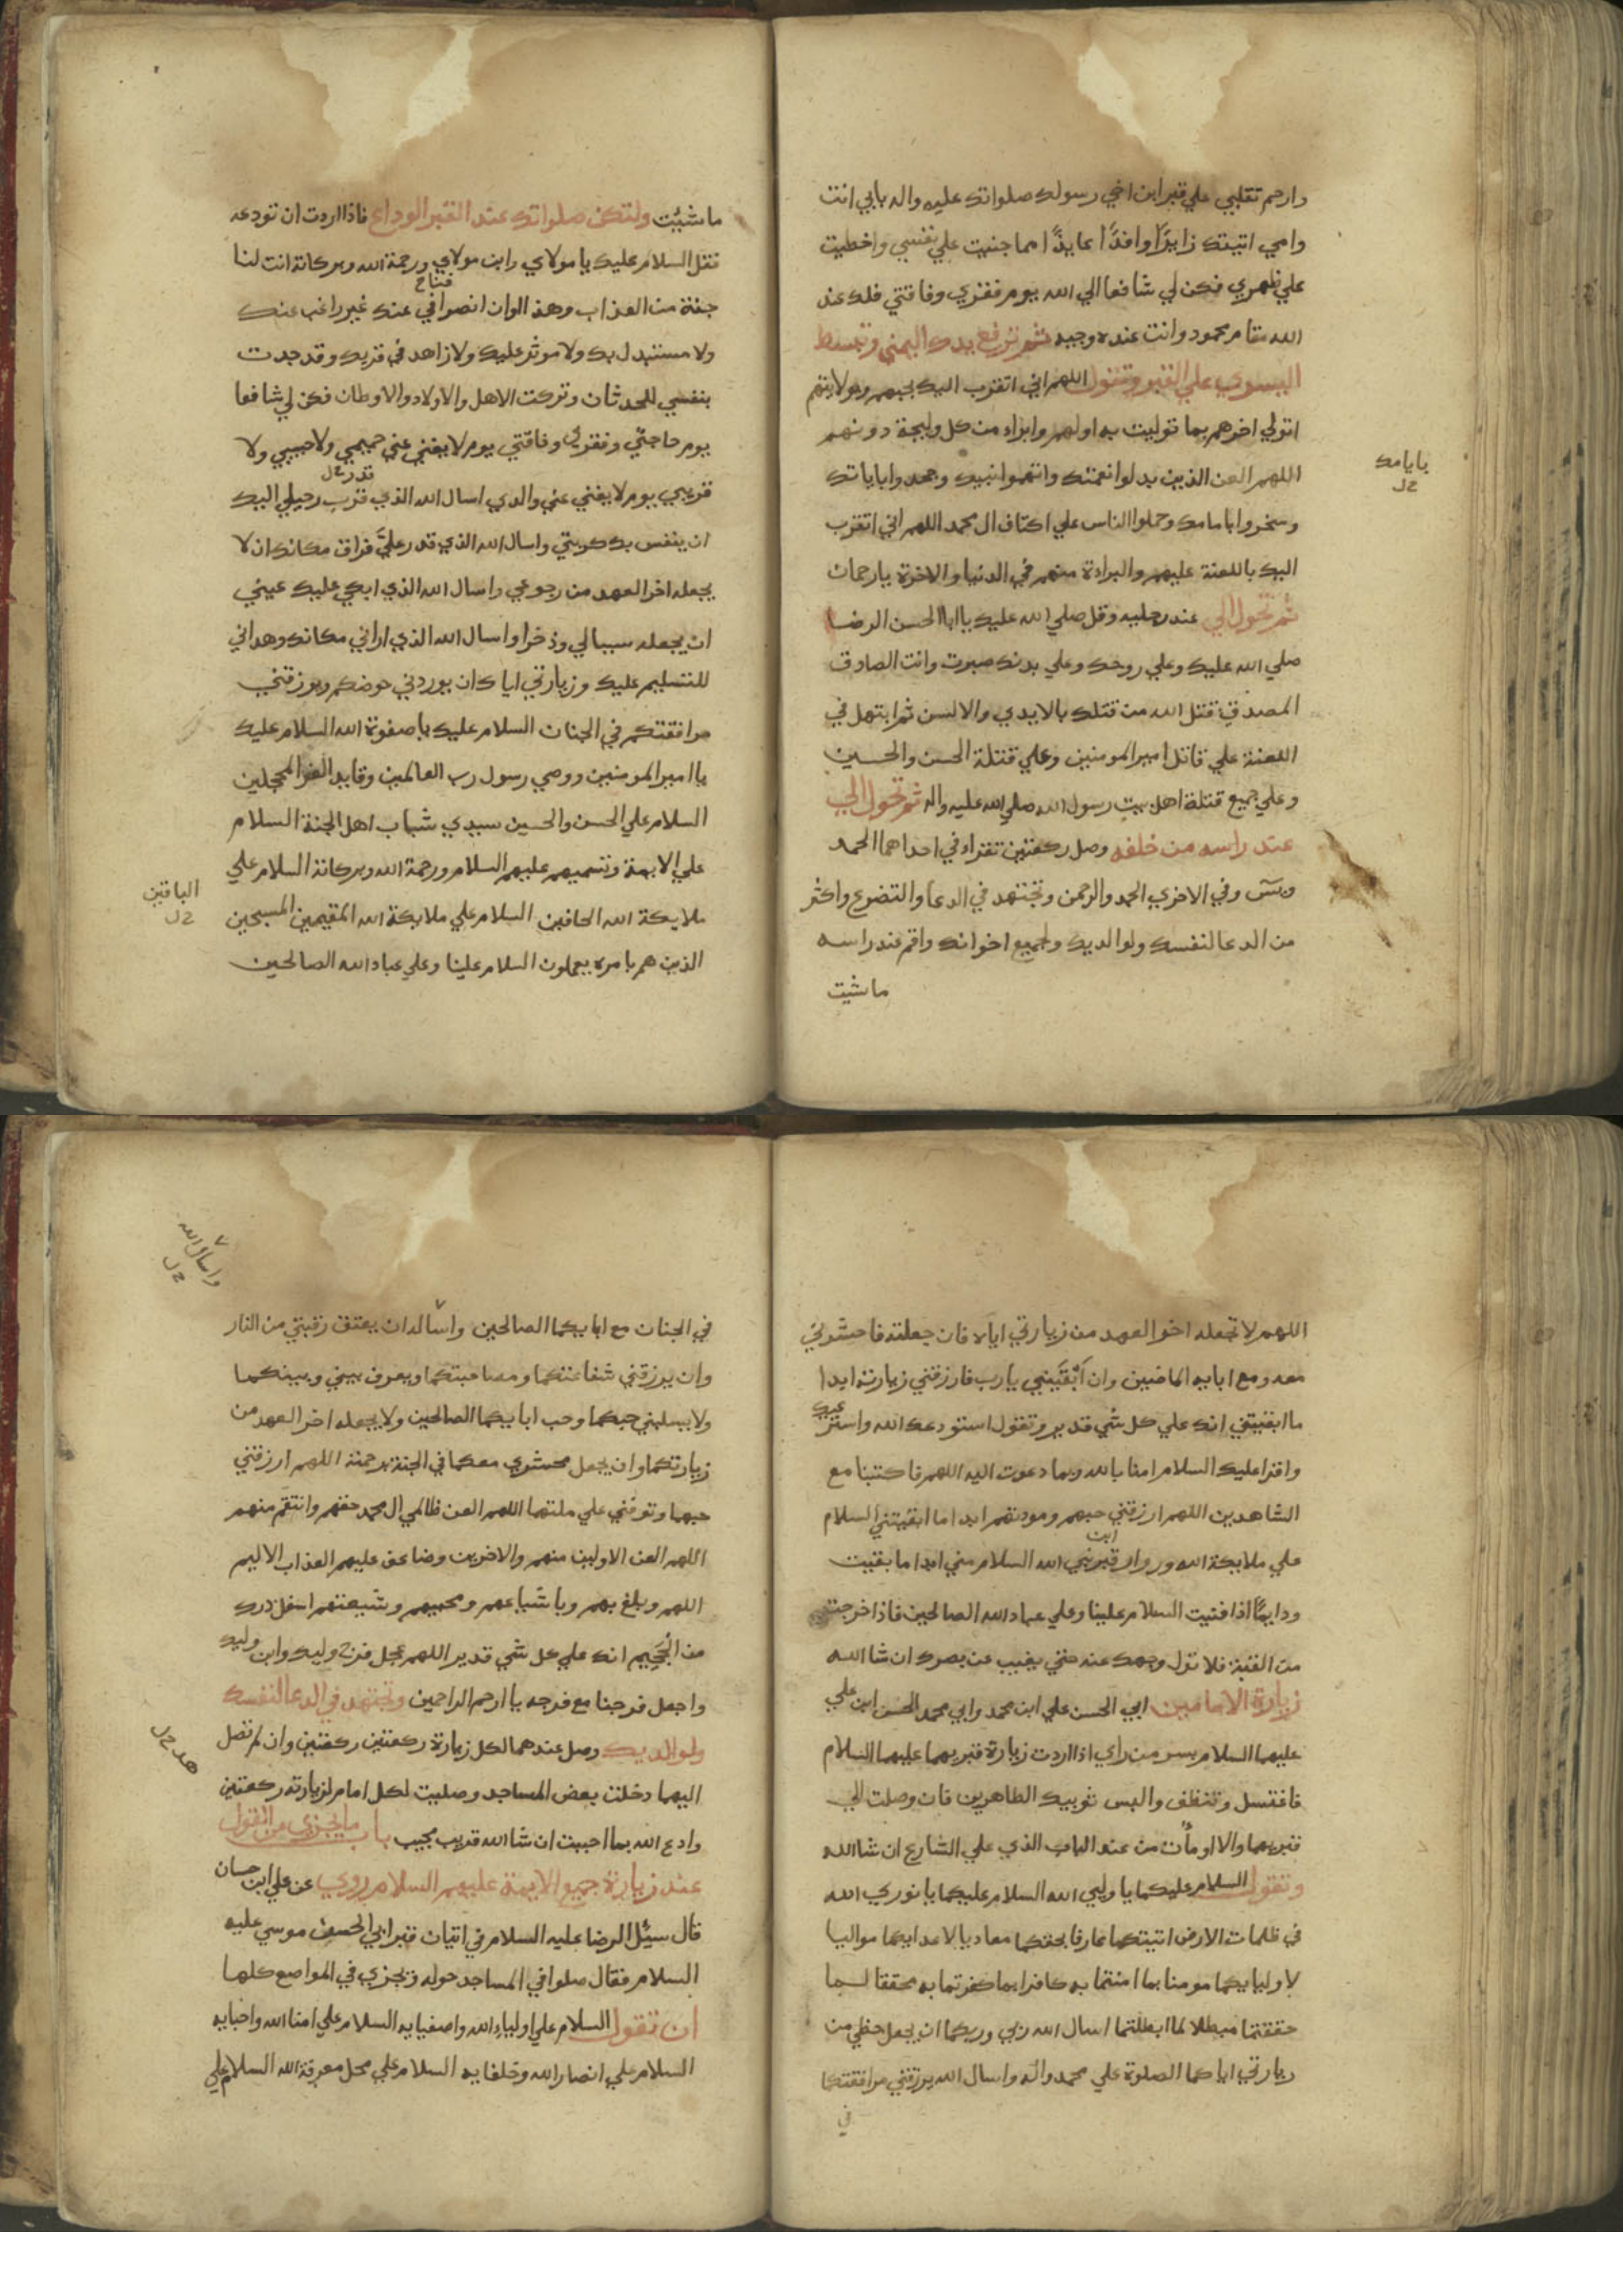 وارحم تقلبي علي قبر ابن اخي رسولك صلواتك عليه واله بابي انت
وامي اتيتك زايرًا وافدًا عايذًا مما جنيت علي نفسي واخطيت
علي ظهري فكن لي شافعا الي الله يوم فقري وفاقتي فلك عند
الله مقام محمود وانت عنده وجيه ثم ترفع يدك اليمني وتبسط
اليسري علي القبر وتقول اللهم اني اتقرب اليك بحبهم وبولايتهم
اتولي اخرهم بما توليت به اولهم وابراء من كل وليجة دونهم
اللهم العن الذين بدلوا نعمتك واتهموا نبيك وجحدوا باياتك
وسخروا بامامك وحملوا الناس علي اكتاف ال محمد اللهم اني اتقرب
اليك باللعنة عليهم والبراءة منهم في الدنيا والاخرة يارحمان
ثم تحول الي عند رجليه وقل صلي الله عليك يا ابا الحسن الرضا
صلي الله عليك وعلي روحك وعلي بدنك صبرت وانت الصادق
المصدق قتل الله من قتلك بالايدي والالسن ثم ابتهل في
اللعنة علي قاتل امير المومنين وعلي قتلة الحسن والحسين
وعلي جميع قتلة اهل بيت رسول الله صلي الله عليه واله ثم تحول الي
عند راسه من خلفه وصل ركعتين تقراء في احداهما الحمد
ويس وفي الاخري الحمد والرحمن وتجتهد في الدعا والتضرع واكثر
من الدعا لنفسك ولوالديك ولجميع اخوانك واقم عند راسه
ما شيت
بايامك
خ ل
ما شئت ولتكن صلواتك عند القبر الوداع فاذا اردت ان تودعه
فقل السلام عليك يا مولاي وابن مولاي ورحمة الله وبركاته انت لنا
جنة من العذاب وهذا اوان انصرافي عنك غير راغب عنك
ولا مستبدل بك ولا موثر عليك ولا زاهد في قربك وقد جدت
بنفسي للحدثان وتركت الاهل والاولاد والاوطان فكن لي شافعا
يوم حاجتي وفقري وفاقتي يوم لا يغني عني حميمي ولا حبيبي ولا
قدر خ ل
قريبي يوم لا يغني عني والدي اسال الله الذي قرب رحيلي اليك
ان ينفس بك كربتي واسال الله الذي قدر عليَّ فراق مكانك ان لا
يجعله اخر العهد من رجوعي واسال الله الذي ابكي عليك عيني
ان يجعله سببا لي وذخرا واسال الله الذي اراني مكانك وهداني
للتسليم عليك وزيارتي اياك ان يوردني حوضكم ويرزقني
مرافقتكم في الجنان السلام عليك يا صفوة الله السلام عليك
يا امير المومنين ووصي رسول رب العالمين وقايد الغر المحجلين
السلام علي الحسن والحسين سيدي شباب اهل الجنة السلام
علي الايمة وتسميهم عليهم السلام ورحمة الله وبركاته السلام علي
ملايكة الله الحافين السلام علي ملايكة الله المقيمين المسبحين
الذين هم بامره يعملون السلام علينا وعلي عباد الله الصالحين
الباقين
خ ل
اللهم لا تجعله اخر العهد من زيارتي اياه فان جعلته فاحشرني
معه ومع ابايه الماضين وان اَبْقَيتَني يارب فارزقني زيارته ابدا
ما ابقيتني انك علي كل شي قدير وتقول استودعك الله واسترعيك
واقرا عليك السلام امنا بالله وبما دعوت اليه اللهم فاكتبنا مع
الشاهدين اللهم ارزقني حبهم ومودتهم ابدا ما ابقيتني السلام
علي ملايكة الله وزوار قبر ابن نبي الله السلام مني ابدا ما بقيت
ودايمًا اذا فنيت السلام علينا وعلي عباد الله الصالحين فاذا خرجت
من القبة فلا تول وجهك عنه حتي يغيب عن بصرك ان شا الله
زيارة الامامين ابي الحسن علي ابن محمد وابي محمد الحسن ابن علي
عليهما السلام بسر من راي اذا اردت زيارة قبريهما عليهما السلام
فاغتسل وتنظف والبس ثوبيك الطاهرين فان وصلت الي
قبريهما والا اومأت من عند الباب الذي علي الشارع ان شا الله
وتقول السلام عليكما يا وليي الله السلام عليكما يا نوري الله
في ظلمات الارض اتيتكما عارفا بحقكما معاديا لاعدايكما مواليا
لاوليايكما مومنا بما امنتما به كافرا بما كفرتما به محققا لما
حققتما مبطلا لما ابطلتما اسال الله ربي وربكما ان يجعل حظي من
زيارتي اياكما الصلوة علي محمد واله واسال الله يرزقني مرافقتكما
في
واسال الله
خ ل
في الجنان مع ابايكما الصالحين واساله ان يعتق رقبتي من النار
وان يرزقني شفاعتكما ومصاحبتكما ويعرف بيني وبينكما
ولا يسلبني حبكما وحب ابايكما الصالحين ولا يجعله اخر العهد من
زيارتكما وان يجعل محشري معكما في الجنة برحمته اللهم ارزقني
حبهما وتوفني علي ملتهما اللهم العن ظالمي ال محمد حقهم وانتقم منهم
اللهم العن الاولين منهم والاخرين وضاعف عليهم العذاب الاليم
اللهم وبلغ بهم وباشياعهم ومحبيهم وشيعتهم اسفل درك
من الجَحِيم انك علي كل شي قدير اللهم عجل فرج وليك وابن وليك
واجعل فرجنا مع فرجه يا ارحم الراحمين وتجتهد في الدعا لنفسك
ولوالديك وصل عندهما لكل زيارة ركعتين ركعتين وان لم تصل
اليهما دخلت بعض المساجد وصليت لكل امام لزيارته ركعتين
وادع الله بما احببت ان شا الله قريب مجيب باب ما يجزي من القول
عند زيارة جميع الايمة عليهم السلام روي عن علي ابن حسان
قال سئِل الرضا عليه السلام في اتيان قبر ابي الحسن موسي عليه
السلام فقال صلوا في المساجد حوله ويجزي في المواضع كلها
ان تقول السلام علي اولياء الله واصفيايه السلام علي امنا الله واحبايه
السلام علي انصار الله وخلفايه السلام علي محل معرفة الله السلام علي